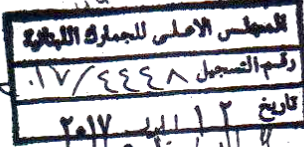 المجلس الاعلى للجمارك اللبنانية
رقم التسجيل ٤٤٤٨/٠١٧
تاريخ ١٢ ٢٠١٧